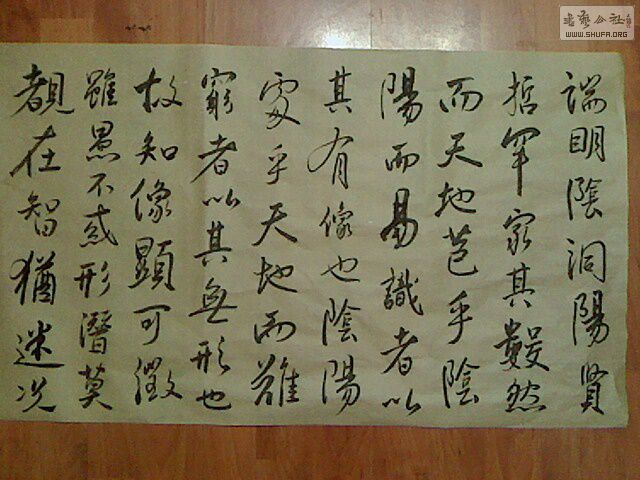 端明陰洞陽賢
哲罕窮其數然
而天地苞乎陰
陽而易識者以
其有像也陰陽
處乎天地而難
窮者以其無形也
故知像顯可徵
雖愚不惑形潛莫
覩在智猶迷況
書藝公社
WWW.SHUFA.ORG